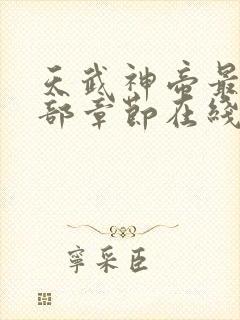 天武神帝最
部章節在綫
寧采臣